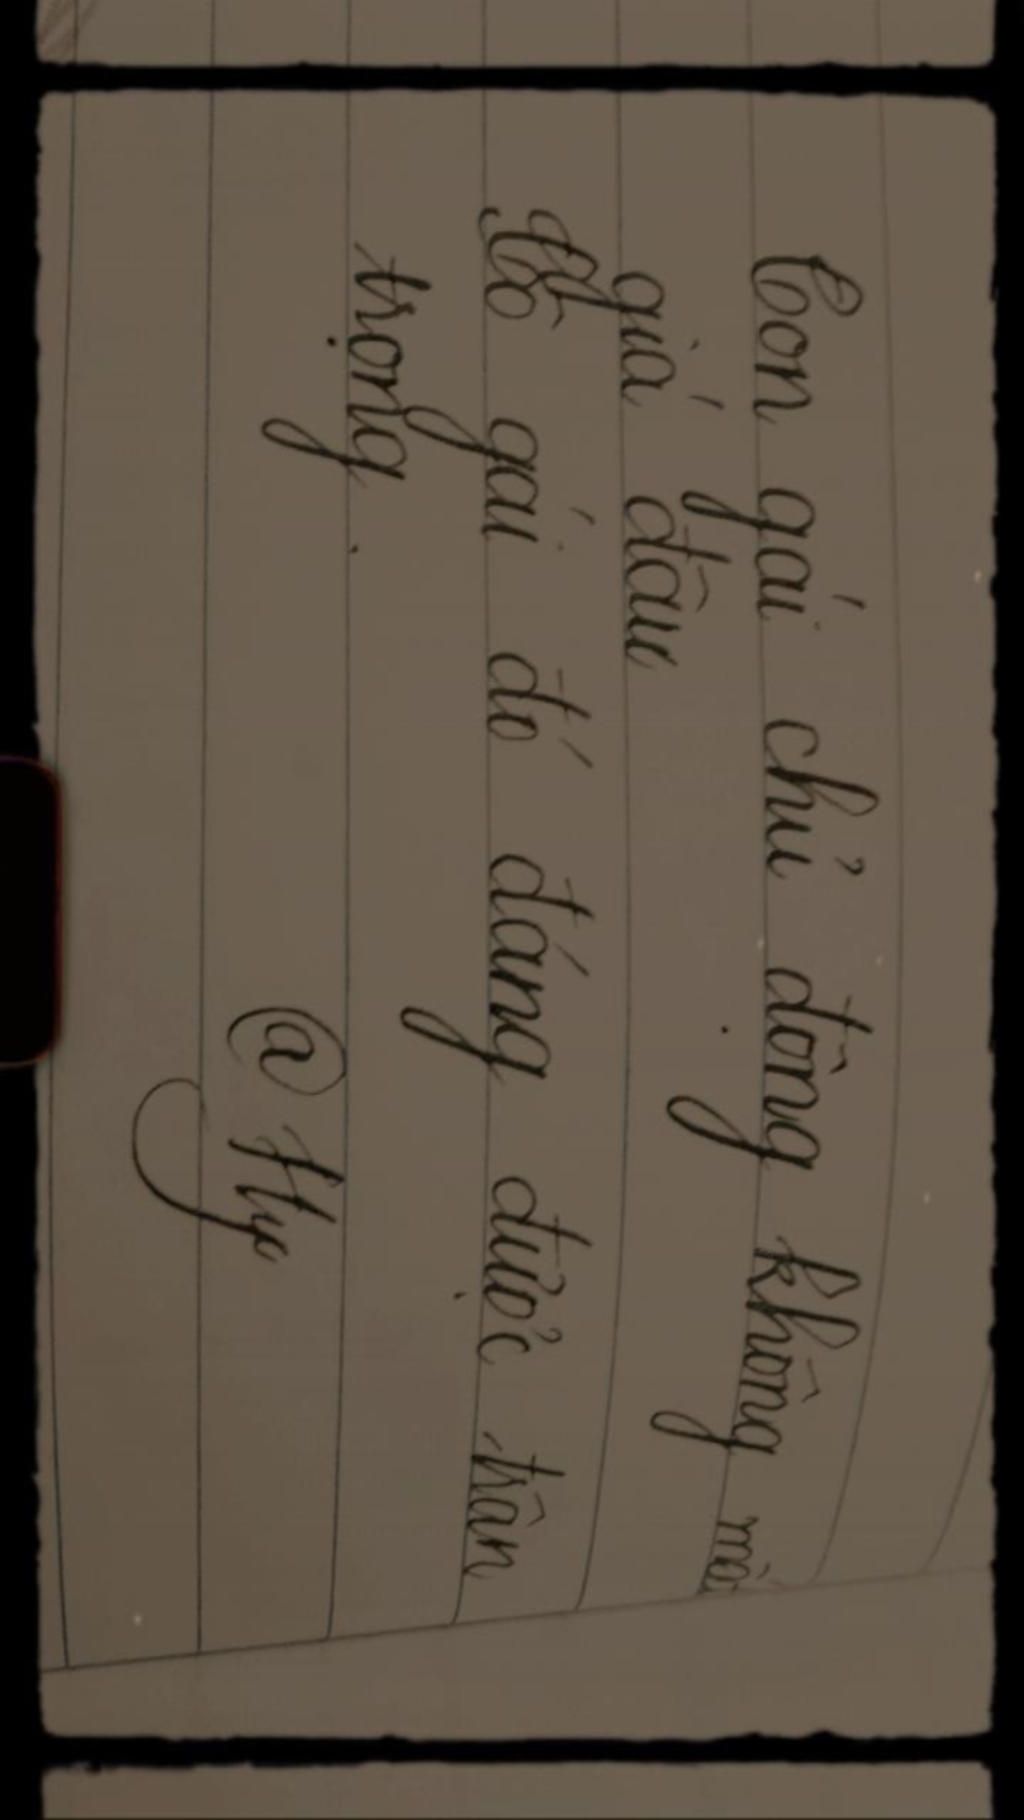 Con gái chủ động không mất
giá đâu
Cô gái đó đáng được trân
trọng.
@ Hy